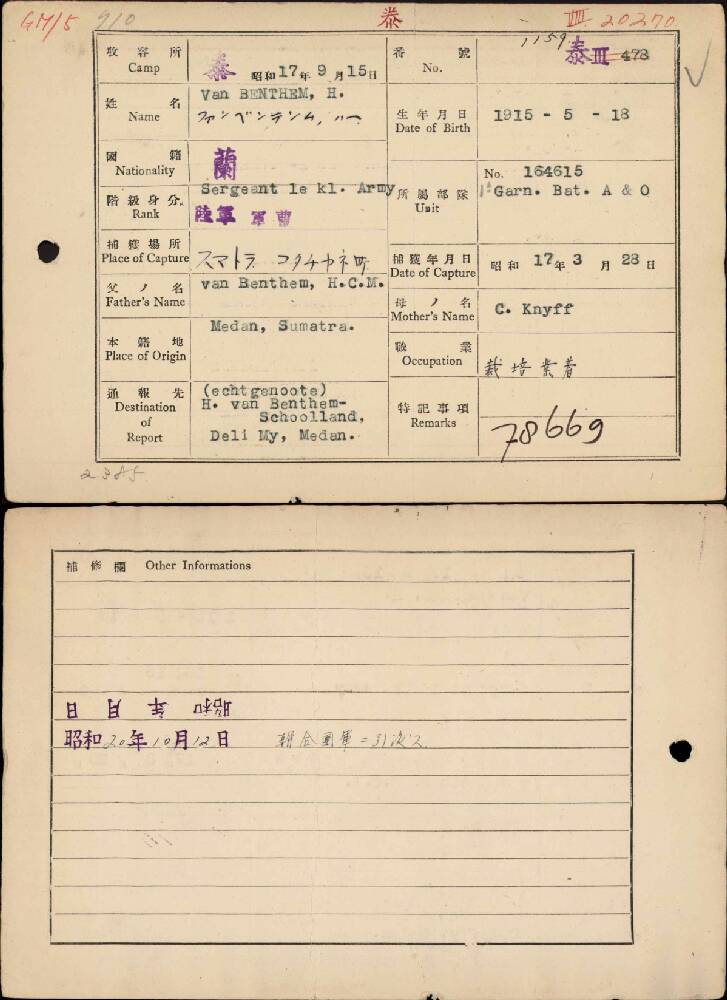 GM/5 910 泰 III 20270
收容所 Camp 泰 昭和17年9月15日
番號 No. 1159 泰III 473
姓名 Name Van BENTHEM, H.
ファンベンテンム, ハー
生年月日 Date of Birth 1915 - 5 - 18
國籍 Nationality 蘭
階級身分 Rank Sergeant 1e kl. Army
陸軍 軍曹
所屬部隊 Unit No. 164615
Garn. Bat. A & O
捕獲場所 Place of Capture スマトラ コタチヤネ町
捕獲年月日 Date of Capture 昭和 17年 3月 28日
父ノ名 Father's Name van Benthem, H.C.M.
母ノ名 Mother's Name C. Knyff
本籍地 Place of Origin Medan, Sumatra.
職業 Occupation 栽培業者
通報先 Destination of Report (echtgenoote)
H. van Benthem-
Schoolland,
Deli My, Medan.
特記事項 Remarks 78669
2385
補修欄 Other Informations
昭和 年 月 日
昭和20年10月12日